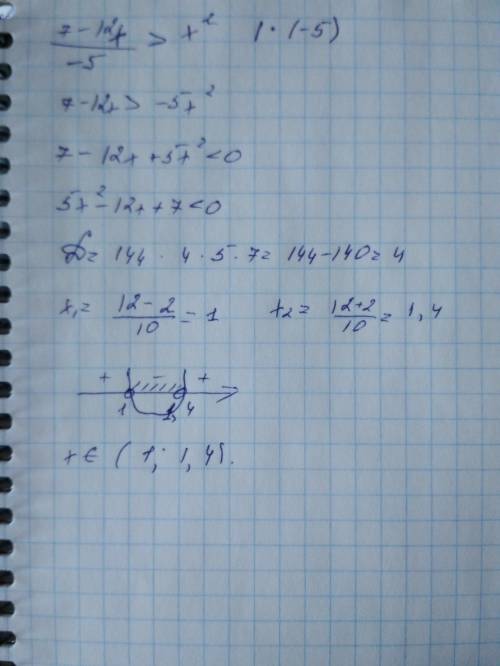 (7-12x)/(-5) > x² | · (-5)
7-12x > -5x²
7-12x+5x²<0
5x²-12x+7<0
D= 144 · 4 · 5 · 7= 144-140=4
x₁= (12-2)/10 = 1 x₂= (12+2)/10 = 1,4
+ - +
1 1,4
x ∈ (1; 1,4).